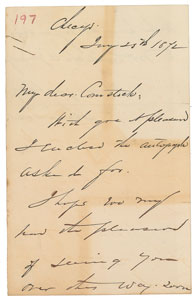 197
Chicago
July 25th 1872
My dear Comstock:
With great pleasure
I enclose the autograph
asked for.
I hope we may
have the pleasure
of seeing you
over this way soon